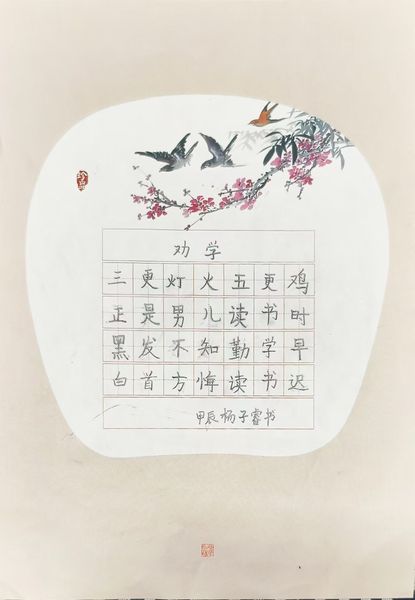 劝学
三更灯火五更鸡
正是男儿读书时
黑发不知勤学早
白首方悔读书迟
甲辰杨子睿书